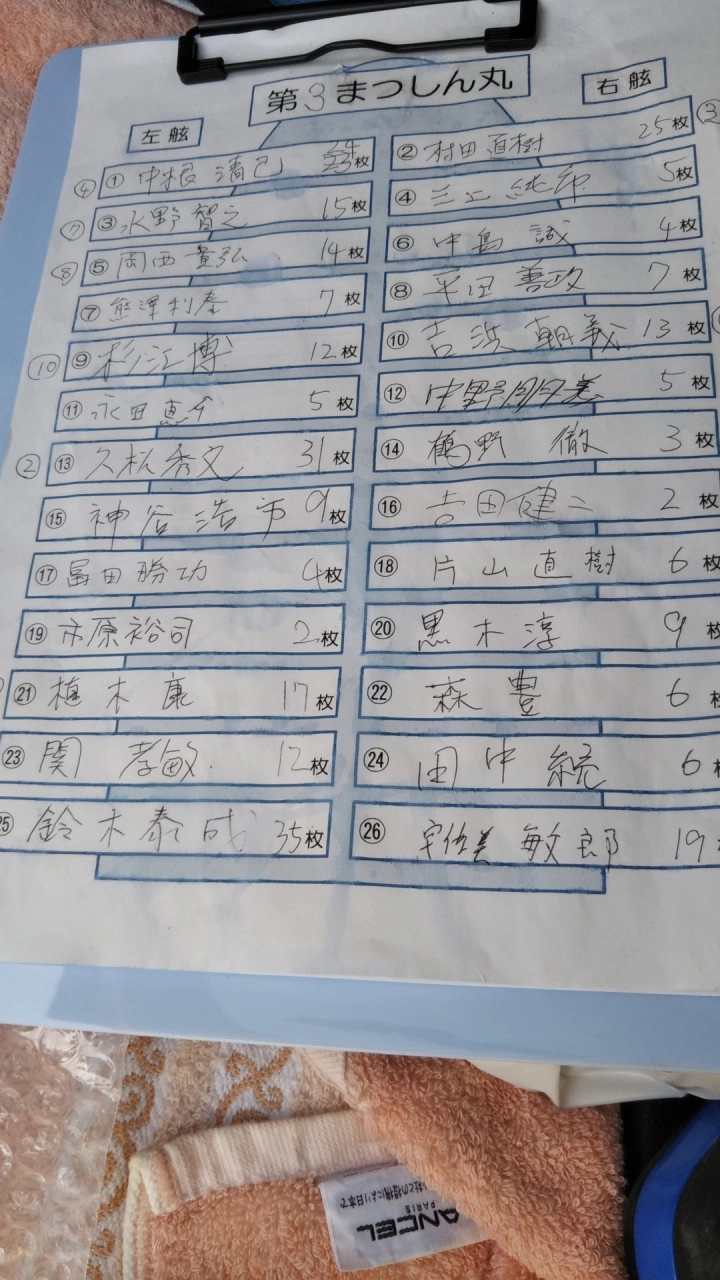 第3まつしん丸
左舷
右舷
④ ① 中根 清己 枚
② 村田 直樹 25枚
⑦ ③ 水野 智之 15枚
④ 5枚
⑧ ⑤ 岡西 貴弘 14枚
⑥ 中島 誠 4枚
⑦ 熊澤利泰 7枚
⑧ 平田 善政 7枚
⑩ ⑨ 杉江 博 12枚
⑩ 吉浜 朝義 13枚
⑪ 永田 5枚
⑫ 中野 5枚
② ⑬ 久松秀文 31枚
⑭ 鶴野 徹 3枚
⑮ 神谷 浩市 9枚
⑯ 吉田健二 2枚
⑰ 冨田勝功 4枚
⑱ 片山直樹 6枚
⑲ 市原裕司 2枚
⑳ 黒木淳 9枚
㉑ 植木康 17枚
㉒ 森 豊 6枚
㉓ 関 孝敏 12枚
㉔ 田中 統 6枚
25 鈴木泰成 35枚
㉖ 宇佐美 敏郎 19
ANCEL
PARIS